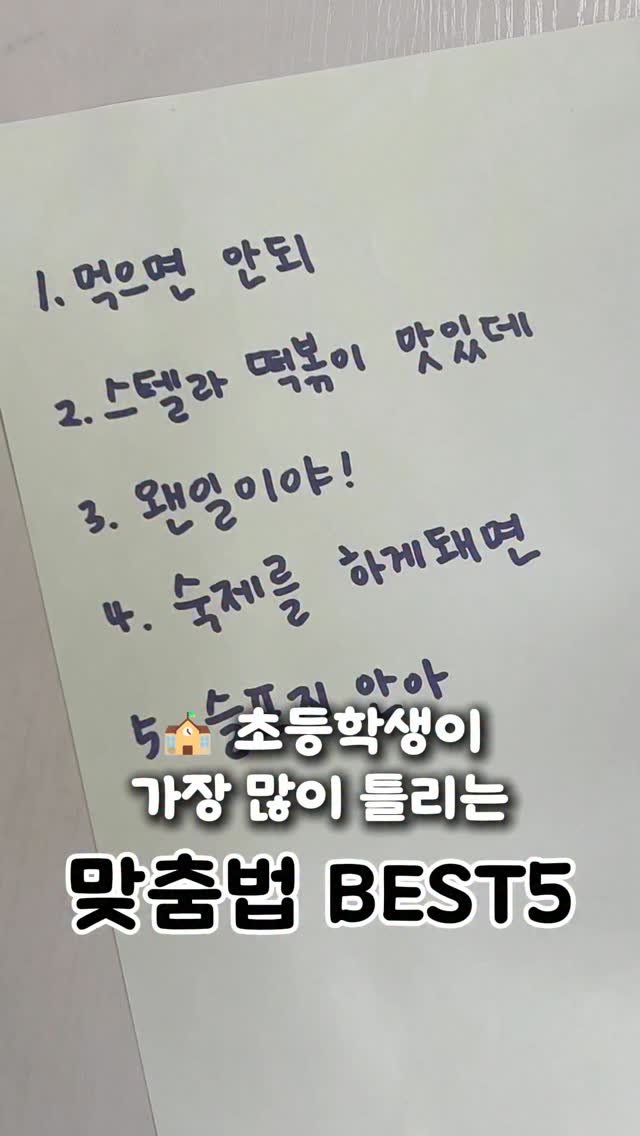 1. 먹으면 안되
2. 스텔라 떡볶이 맛있데
3. 왠일이야!
4. 숙제를 하게돼면
5. 슬프지 안아
🏫 초등학생이
가장 많이 틀리는
맞춤법 BEST5